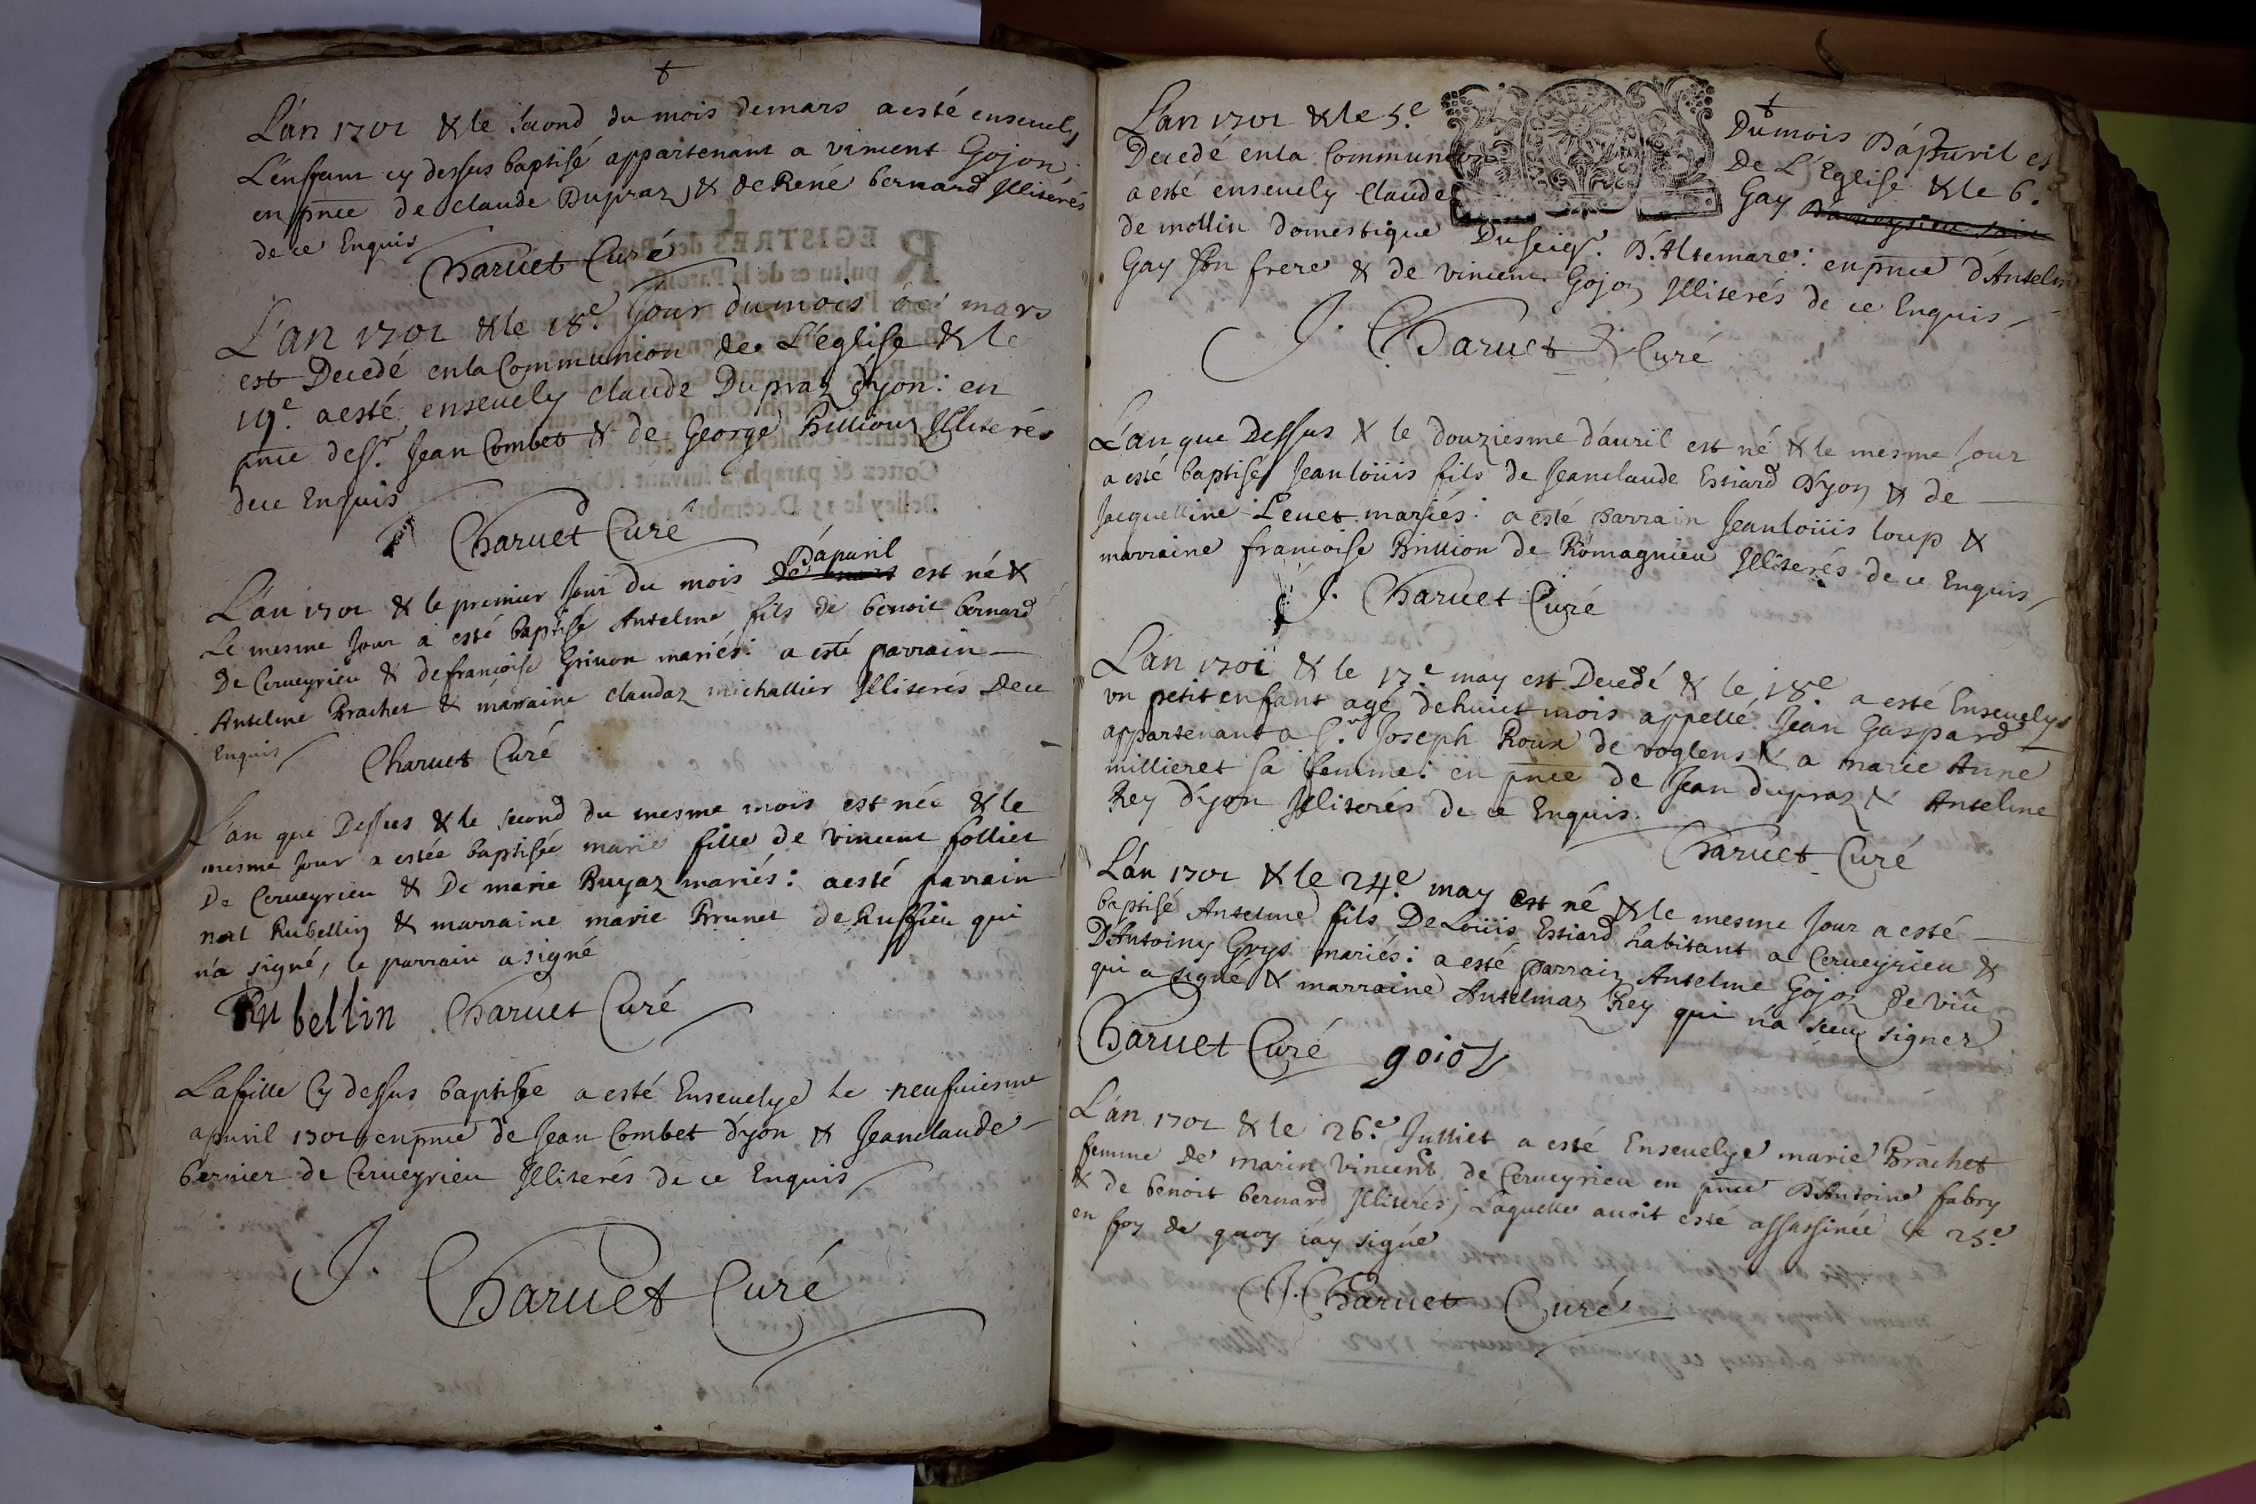 L'an 1701 & le second du mois de mars a esté enseuely
L'enffant cy dessus baptisé appartenant a vincent Gojon
en pnce de claude Dupraz, & de René bernard Illiserés
de ce Enquis
Charuet Curé
L'an 1701 & le 18e. Jour du mois de mars
est Decedé en la Communion de L'église & le
19e. a esté enseuely claude Dupraz d'yon: en
pnce de sr. Jean Combet & de George Billioux Illiserés
de ce Enquis
Charuet Curé
D'apuril
L'an 1701 & le premier Jour du mois de mars est né &
Le mesme Jour a esté baptisé Anselme fils de benoit bernard
De Cerueyrieu & de françoise Grinon mariés: a esté parrain
Anselme Brachet & marraine claudaz michallier Illiserés De ce
Enquis
Charuet Curé
L'an que Dessus & le second du mesme mois est née & le
mesme Jour a estée baptisée marie fille de vincent follier
De Cerueyrieu & De marie Buyaz mariés: a esté parrain
noel Rubellin & marraine marie Brunet de Ruffieu qui
n'a signé, le parrain a signé
Rubellin Charuet Curé
La fille cy dessus baptisée a esté Enseuelye le neufuiesme
apuril 1701 en pnce de Jean Combet d'yon & Jeanclaude
bernier de Cerueyrieu Illiserés de ce Enquis
J. Charuet Curé
L'an 1701 & le 5.e Du mois D'apuril est
Decedé en la Communion De L'Eglise & le 6.e
a esté enseuely Claude Gay
de mollin domestique Du seigr. D'Altemare: en pnce d'Anselme
Gay son frere & de vincent Gojon Illiserés de ce Enquis
J. Charuet Curé
L'an que Dessus & le douziesme d'auril est né & le mesme Jour
a esté baptisé Jean loüis fils de Jeanclaude Estiard D'yon & de
Jacquelline Leuet mariés: a esté parrain Jean loüis loup &
marraine francoise Billion de Romagnieu Illiserés de ce Enquis
J. Charuet Curé
L'an 1701 & le 17.e may est Decedé & le 18e a esté Enseuely
vn petit enfant agé de huict mois appellé Jean Gaspard
appartenant a sr. Joseph Roux de voglens & a marie Anne
millieret sa femme: en pnce de Jean dupraz & Anselme
Rey d'yon Illiserés de ce Enquis.
Charuet Curé
L'an 1701 & le 24.e may est né & le mesme Jour a esté
baptisé Anselme fils De Loüis Estiard habitant a Cerueyrieu &
D'Antoiny Grys mariés: a esté parrain Anselme Gojon de viu
qui a signé & marraine Anselmaz Rey qui n'a sceu signer
Charuet Curé goion
L'an 1701 & le 26.e Julliet a esté Enseuelye marie Brachet
femme de marin Vincent de Cerueyrieu en pnce D'Antoine fabry
& de benoit bernard Illiserés, Laquelle auoit esté assassinée le 25.e
en foy de quoy i'ay signé
J. Charuet Curé